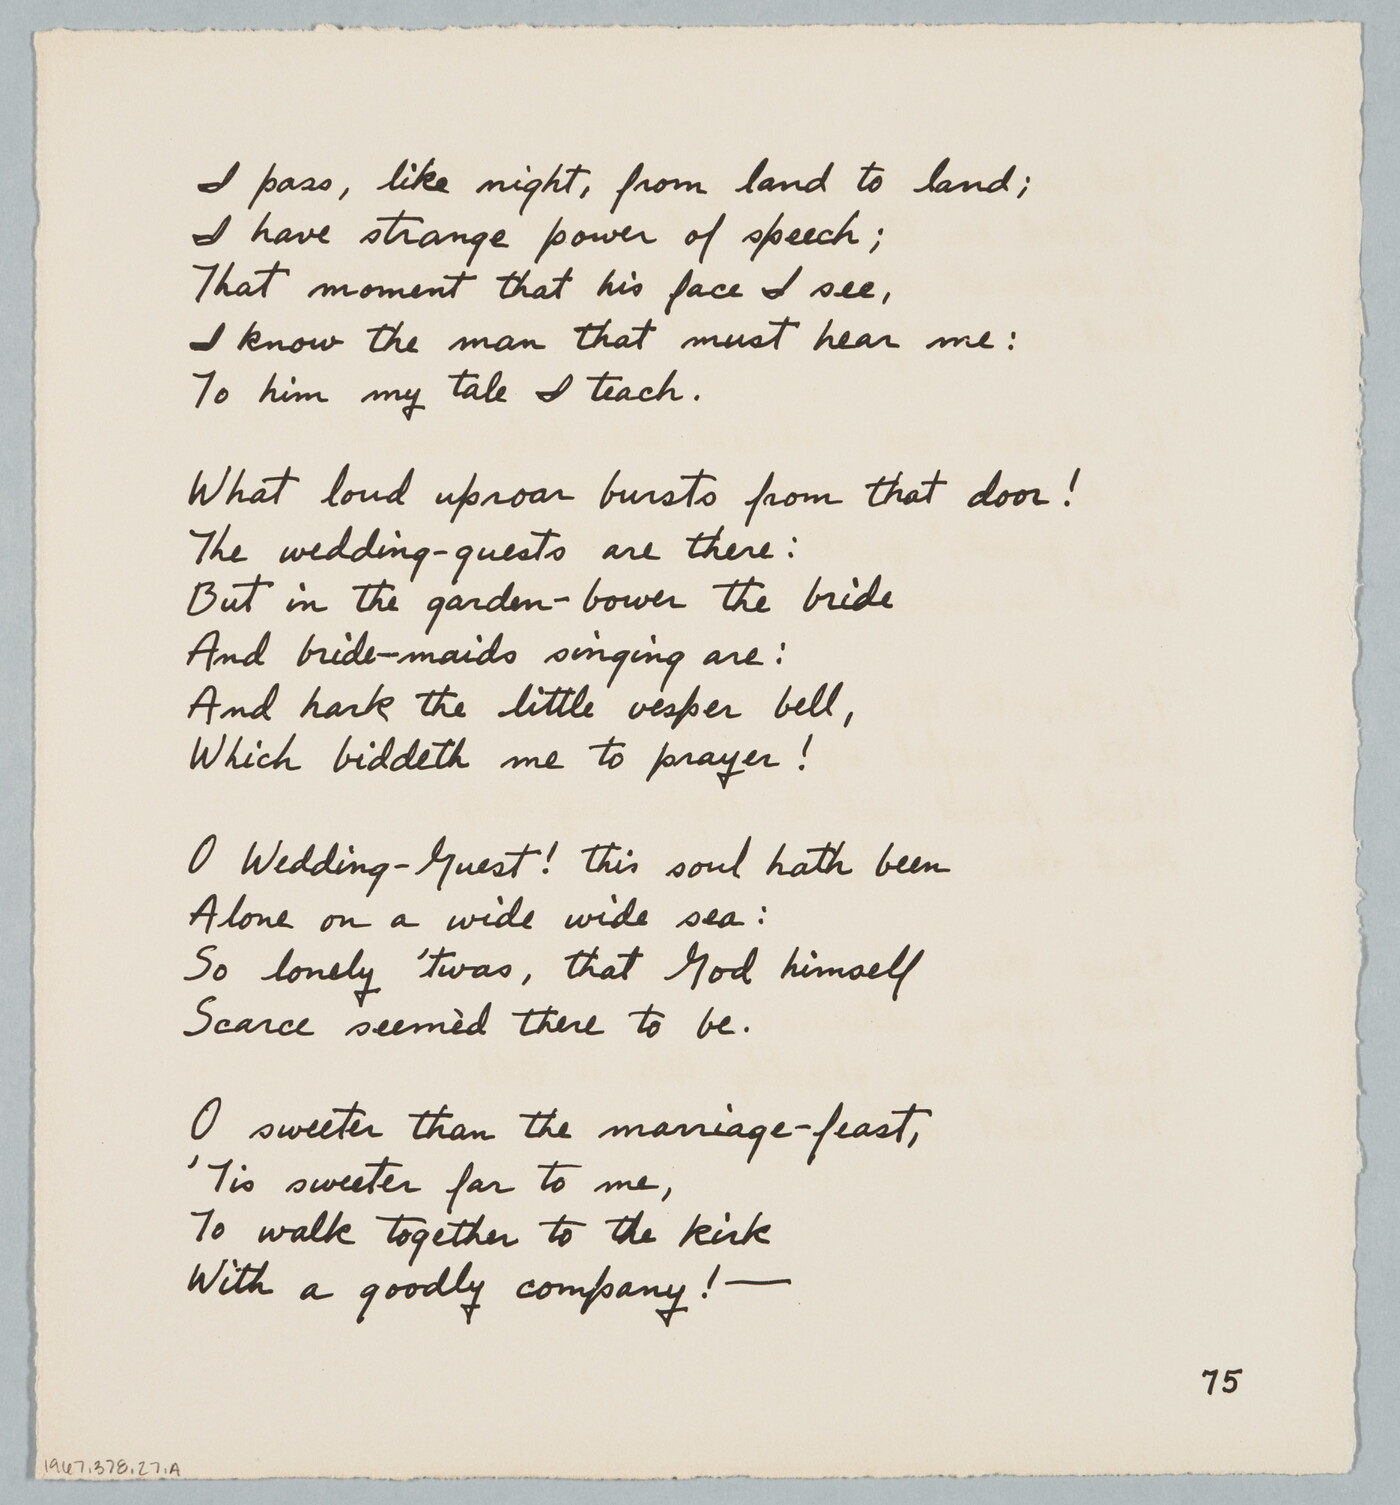 I pass, like night, from land to land;
I have strange power of speech;
That moment that his face I see,
I know the man that must hear me:
To him my tale I teach.

What loud uproar bursts from that door!
The wedding-guests are there:
But in the garden-bower the bride
And bride-maids singing are:
And hark the little vesper bell,
Which biddeth me to prayer!

O Wedding-Guest! this soul hath been
Alone on a wide wide sea:
So lonely 'twas, that God himself
Scarce seemèd there to be.

O sweeter than the marriage-feast,
'Tis sweeter far to me,
To walk together to the kirk
With a goodly company!—

75
1967.378.27.A